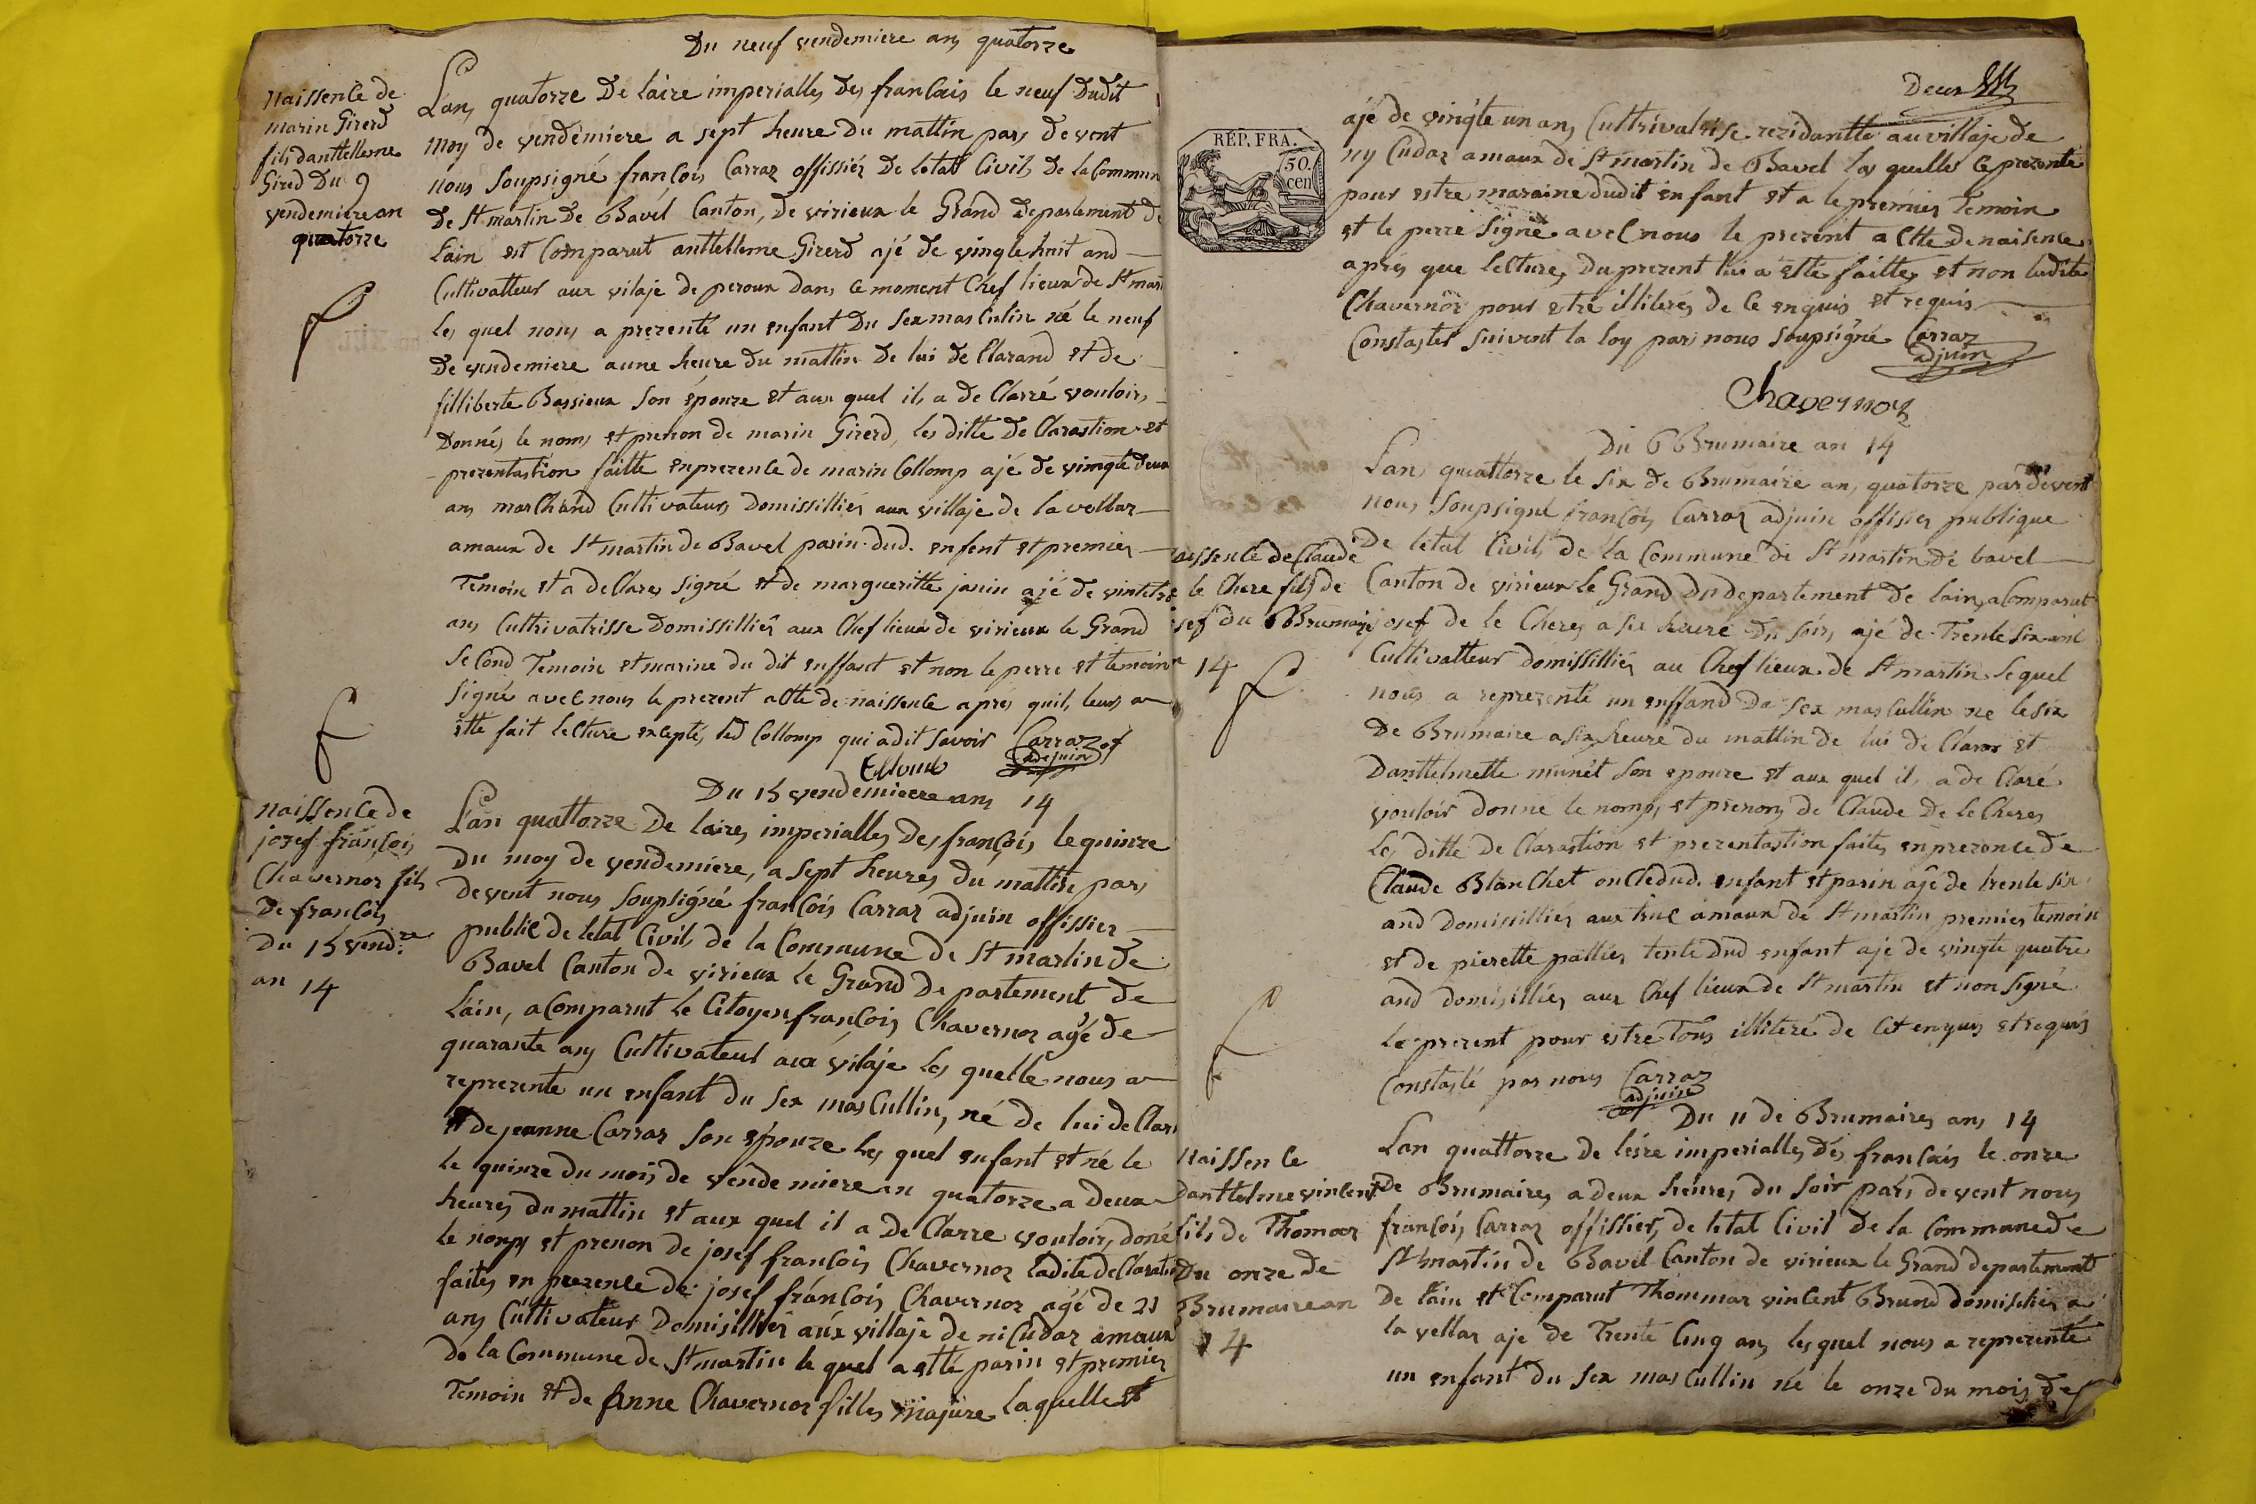 Du neuf vendemiere ans quatorze
Naissence de
marin Girerd
fils danttelleme
Girerd Du 9
vendemiere an
quatorze
L'an quatorze De laire imperialles Des francais le neuf Dudit
moy de vendemiere a sept heure Du mattin pars devent
nous soupsigné francois Carraz offissier De letat Civil De la Commun
De St martin De Bavel Canton, De virieux le Grand Departement De
Lain est Comparut anttelleme Girerd ajé de vingte huit and
Cultivatteur aux vilaje De peroux Dans ce moment Chef lieux de St mar
les quel nous a prezenté un enfant Du sex masculin né le neuf
De vendemiere a une heure du mattin De lui de Clarand et de
filliberte Bassieux son épouze et aux quel il a de Clarré vouloir
Donnés le noms et prenon de marin Girerd, les ditte de Clarastion et
prezentastion faitte en prezence de marin Collomp ajé de vingte deux
ans marchand Cultivateur Domissilliés aux villaje de la vellaz
amaux de St martin de Bavel parin dud. enfent et premier
Temoin et a de Clarez signé et de margueritte janin ajé de vintetrs
ans Cultrivatrisse Domissilliés aux Chef lieux de virieux le Grand
second Temoin et marine du dit enffant et non le perre et temoin
signé avec nous le prezent actte de naissence après quil leurs a
etté fait lecture exceptés led Collomp qui adit savoir Carraz of
adejuin
Collomb
Du 15 vendemiere ans 14
naissence de
jozef françois
Chavernoz fils
De francois
Du 15 vend.re
an 14
L'an quattorze De laires imperialles Des françois le quinze
Du moy de vendemiere, a sept heures Du mattin pars
devent nous soupsigné francois Carraz adjuin offissier
public de letat Civil de la Commune de St martin de
Bavel Canton de virieux le Grand Departement de
Lain, a Comparut le Citoyen francois Chavernoz agé de
quarante ans Cultivateur aux vilaje les quelle nous a
reprezente un enfant Du sex mas Cullin, né de lui de Clar
et de jeanne Carraz son épouze les quel enfant et né le
le quinze du mois de vendemiere an quatorze a deux
heures du mattin et aux quel il a de Clarre vouloir, doné
le noms et prenon de josef francois Chavernoz ladite de Claration
faites en prezence de josef francois Chavernoz agé de 21
ans Cultivateur Domisilliér aux villaje de ni Cudaz amaux
de la Commune de St martin le quel a etté parin et premier
Temoin et de Anne Chavernoz filles majure laquelle et
Deux
REP. FRA.
50.
cen
ajé de vingte un ans Cultrivatrise rezidantte au villaje de
ny Cudaz amaux de St martin de Bavel las quelles Ce prezente
pour estre maraine dudit enfant et a le premier Temoin
et le perre signé avec nous le prezent actte de naisence
après que lecture, Du prezent lui a etté faitte, et non ladite
Chavernoz pour etre illiterés de ce enquis et requis
Constaster suivent la loy par nous soupsigné Carraz
adjuin
Chavernoz
Du 6 Brumaire an 14
aissence de Claude
le Chere fils de
osef du 6 Brumaire
14
Lan quattorze le six de Brumaire an, quatorze par devent
nous soupsigné francois Carraz adjuin offisier publique
De letat Civil de la Commune de St martin de bavel
Canton de virieux le Grand Du departement de lain, a Comparut
josef de le Cheres a six heure Du soir, ajé de Trente six and
Cultivatteur domissilliés au Chef lieux de St martin Lequel
nous a reprezenté un enffand Du sex mas Cullin ne le six
De Brumaire a six heure du mattin de lui de Claror et
Danttelmette munét son epouze et aux quel il a de Claré
vouloir donné le noms, et prenons de Claude De le Cheres
les ditte de Clarastion et prezentastion faites en prezence de
Claude Blanchet oncle dud. enfant et parin ajé de trente six
and domisilliés aux truc amaux de St martin premier temoin
et de pierette pattiés tente dud enfant aje de vingte quatre
and domisilliés aux Chef lieux de St martin et non signé
le prezent pour estre Tous illiteré de Cet enquis et requis
Constasté par nous Carraz
adjuin
Du 11 de Brumaires ans 14
Naissence
Danttelme vincent
fils de Thomaz
Du onze de
Brumaire an
14
Lan quattorze de lésre imperialles dés francais le onze
De Brumaires a deux heures du soir pars devent nous
francois Carraz offissier, de letat Civil de la Commune de
St martin de Bavel Canton de virieux le Grand departement
De lain et Comparut Thommaz vincent Brund domisilier a
la vellaz aje de Trente Cinq ans lesquel nous a reprezenté
un enfant du sex mas Cullin né le onze du mois de